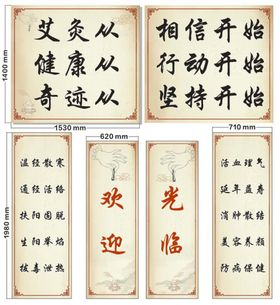 1400 mm
艾灸从
健康从
奇迹从
相信开始
行动开始
坚持开始
1530 mm
620 mm
710 mm
1980 mm
温经散寒
通经活络
扶阳固脱
生阳举焰
拔毒泄热
欢迎
光临
活血理气
延年益寿
消肿散结
美容养颜
防病保健